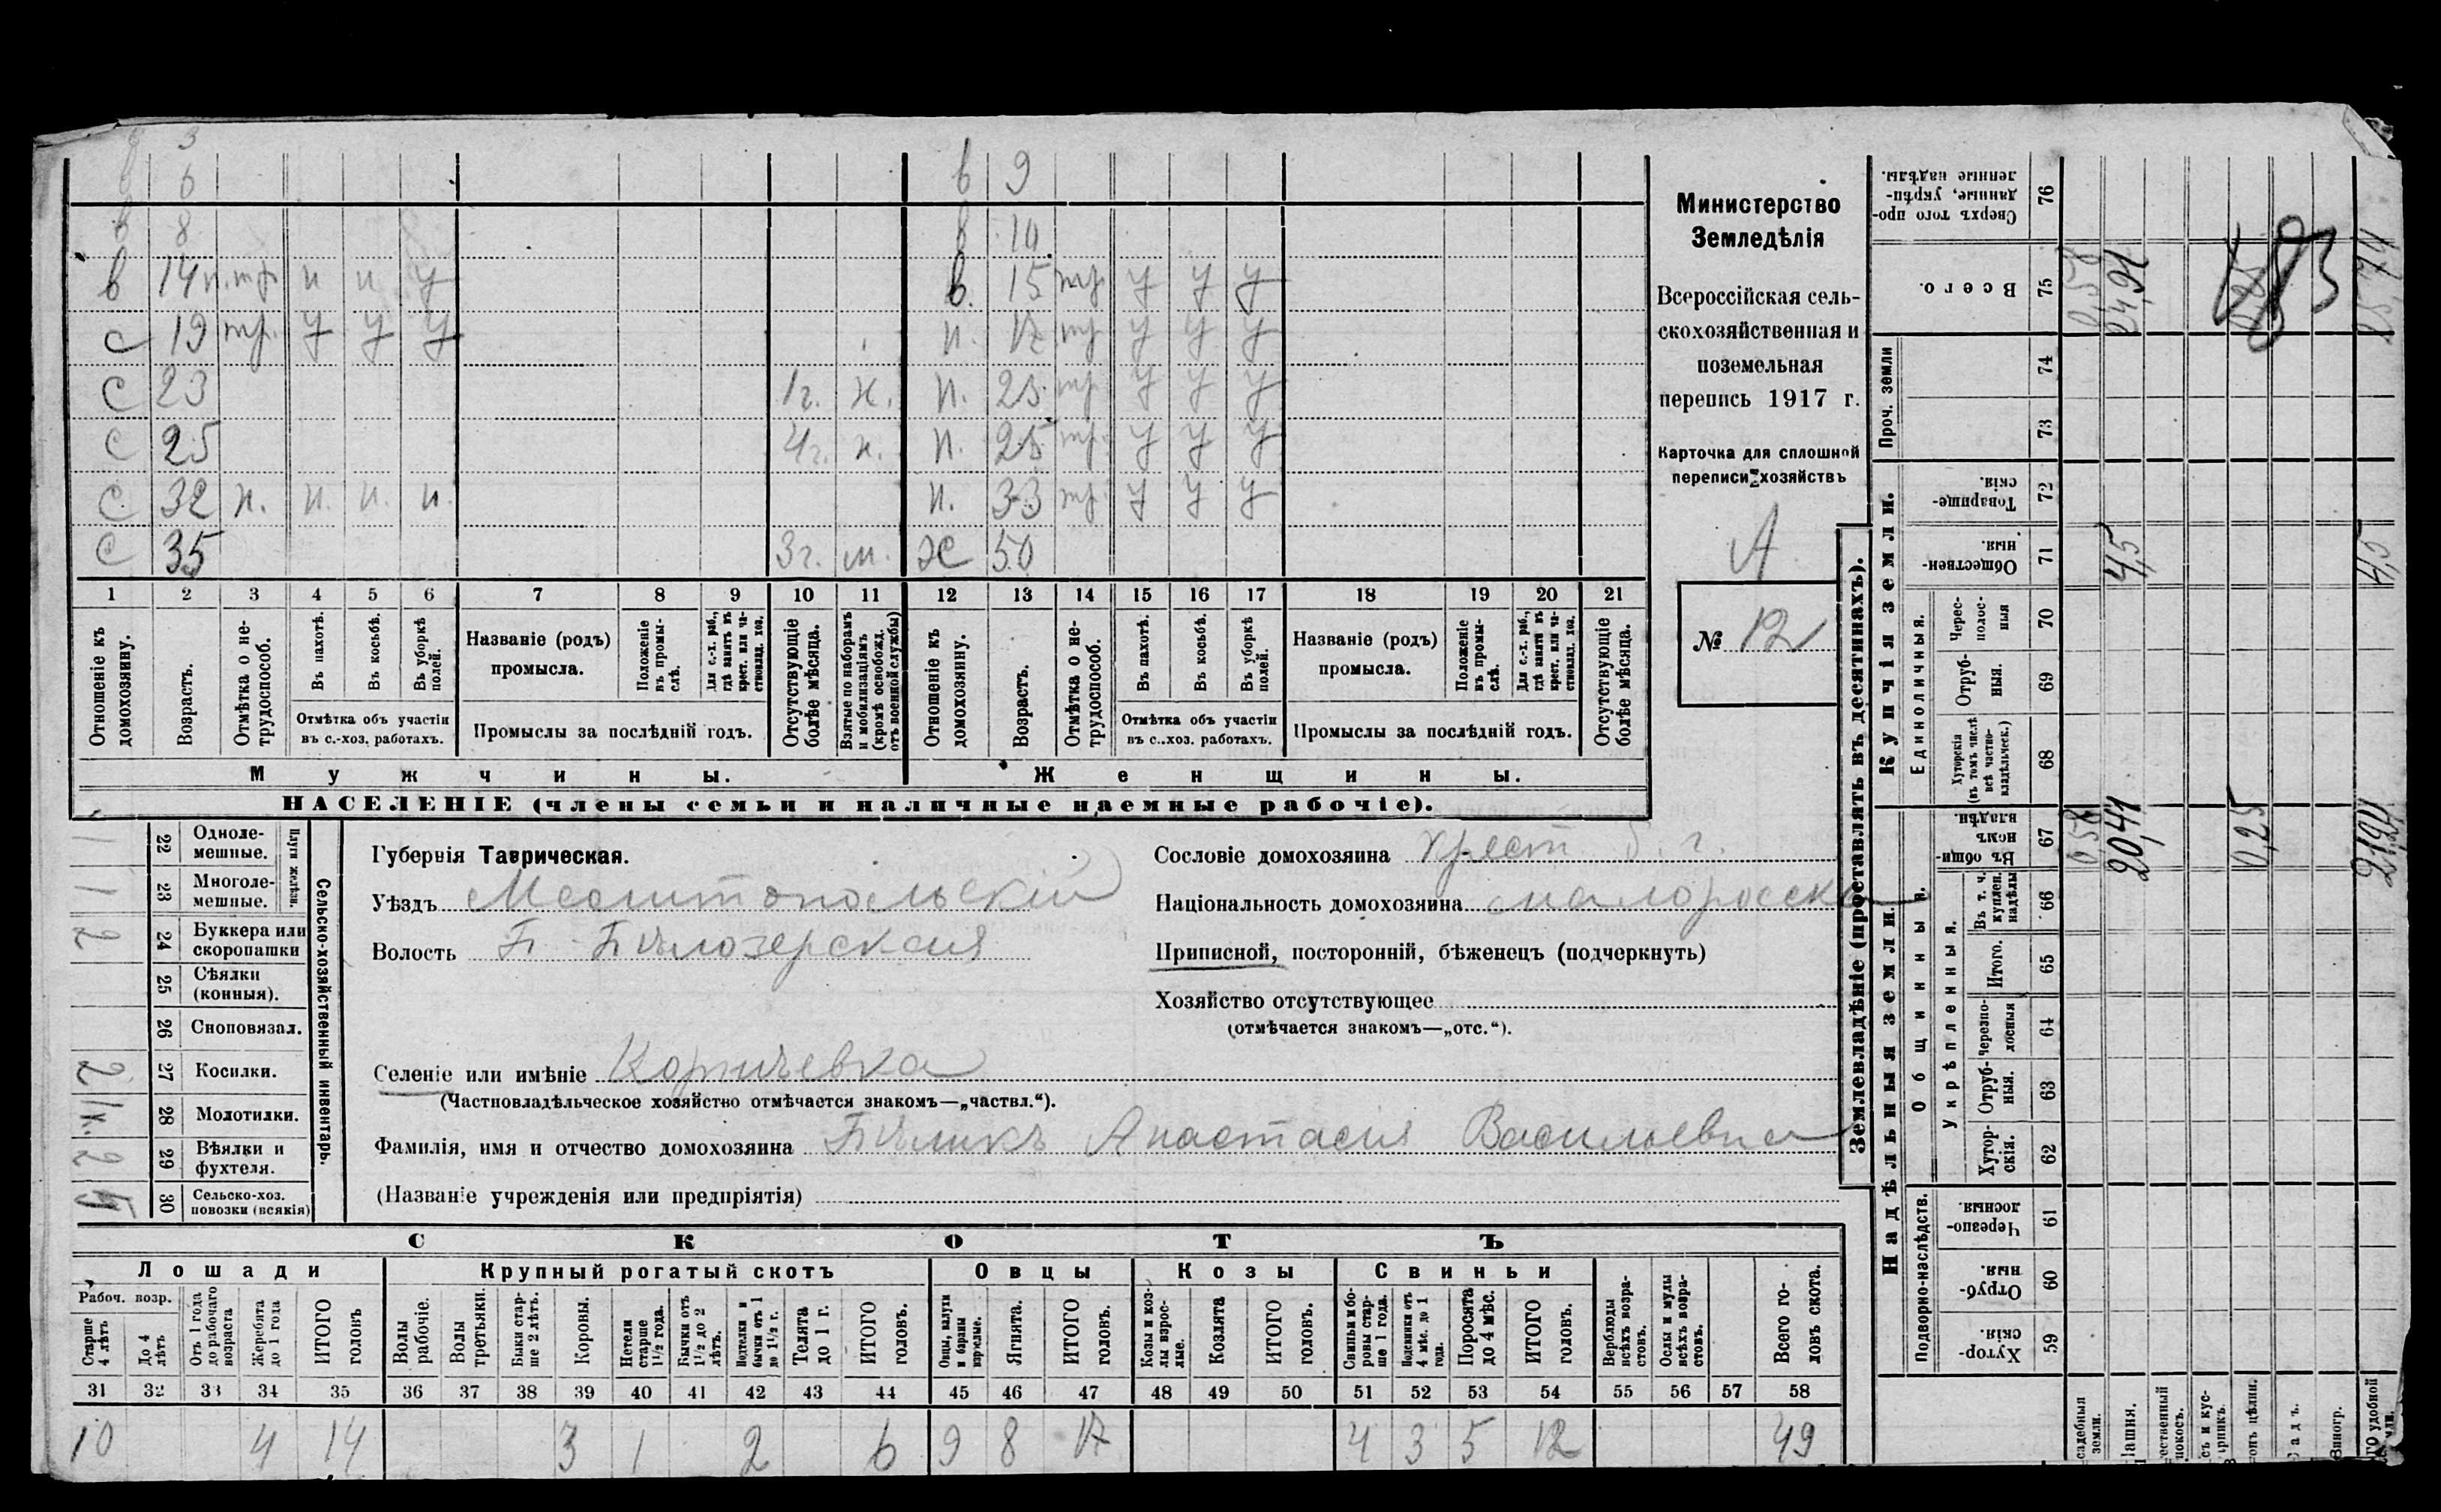 3
в 6 в 9
в 8 в
в 14 п. тр. п п у в. 15 тр у у у
с 19 тр. у у у п. 17 тр у у у
с 23 1г. н. п. 23 тр у у у
с 25 4г. н. п. 25 тр. у у у
с 32 н. п. п. п. п. 33 тр. у у у
с 35 3г. м. Ж 50
1 2 3 4 5 6 7 8 9 10 11 12 13 14 15 16 17 18 19 20 21
Отношеніе къ домохозяину.
Возрастъ.
Отмѣтка о не-трудоспособ.
Въ пахотѣ.
Въ косьбѣ.
Въ уборкѣ полей.
Отмѣтка объ участіи
въ с.-хоз. работахъ.
Названіе (родъ)
промысла.
Положеніе въ промы-слѣ.
Для с.-х. раб., гдѣ занятъ въ крест. или ча-стновлад. хоз.
Промыслы за послѣдній годъ.
Отсутствующіе болѣе мѣсяца.
Взятые по наборамъ и мобилизаціямъ (кромѣ освобожд. отъ военной службы)
Отношеніе къ домохозяину.
Возрастъ.
Отмѣтка о не-трудоспособ.
Въ пахотѣ.
Въ косьбѣ.
Въ уборкѣ полей.
Отмѣтка объ участіи
въ с..хоз. работахъ.
Названіе (родъ)
промысла.
Положеніе въ промы-слѣ.
Для с.-х. раб., гдѣ занятъ въ крест. или ча-стновлад. хоз.
Промыслы за послѣдній годъ.
Отсутствующіе болѣе мѣсяца.
Мужчины. Женщины.
НАСЕЛЕНІЕ (члены семьи и наличные наемные рабочіе).
Министерство
Земледѣлія
Всероссійская сель-
скохозяйственная и
поземельная
перепись 1917 г.
Карточка для сплошной
переписи хозяйствъ
А
№ 12
Сельско-хозяйственный инвентарь.
Плуги желѣзн.
1 22 Одноле-мешные.
1 23 Многоле-мешные.
2 24 Буккера или скоропашки
25 Сѣялки (конныя).
26 Сноповязал.
2 27 Косилки.
1к. 28 Молотилки.
2 29 Вѣялки и фухтеля.
5 30 Сельско-хоз. повозки (всякія)
Губернія Таврическая.
Уѣздъ Мелитопольскій
Волость Б Бѣлозерская
Сословіе домохозяина крест
Національность домохозяина малоросска
Приписной, посторонній, бѣженецъ (подчеркнуть)
Хозяйство отсутствующее
(отмѣчается знакомъ—„отс.“).
Селеніе или имѣніе
(Частновладѣльческое хозяйство отмѣчается знакомъ—„частвл.“).
Фамилія, имя и отчество домохозяина Бѣликъ Анастасія Васильевна
(Названіе учрежденія или предпріятія)
СКОТЪ
Лошади Крупный рогатый скотъ Овцы Козы Свиньи
Рабоч. возр.
Старше 4 лѣтъ
До 4 лѣтъ
Отъ 1 года до рабочаго возраста
Жеребята до 1 года
ИТОГО головъ
Волы рабочіе.
Волы третьяки.
Быки стар-ше 2 лѣтъ.
Коровы.
Нетели старше 1½ года.
Бычки отъ 1½ до 2 лѣтъ.
Подтелки и бычки отъ 1 до 1½ г.
Телята до 1 г.
ИТОГО головъ.
Овцы, валухи и бараны взрослые.
Ягнята.
ИТОГО головъ.
Козы и коз-лы взрос-лые.
Козлята
ИТОГО головъ.
Свиньи и бо-ровы стар-ше 1 года.
Подсвинки отъ 4 мѣс. до 1 года.
Поросята до 4 мѣс.
ИТОГО головъ.
Верблюды всѣхъ возра-стовъ.
Ослы и мулы всѣхъ возра-стовъ.
Всего го-ловъ скота.
31 32 33 34 35 36 37 38 39 40 41 42 43 44 45 46 47 48 49 50 51 52 53 54 55 56 57 58
10 4 14 3 1 2 6 9 8 17 4 3 5 12 49
Землевладѣніе (проставлять въ десятинахъ).
Надѣльныя земли. Купчія земли. Проч. земли
Подворно-наслѣдств.
Общинныя.
Укрѣпленныя.
Единоличныя.
59 Хутор-скія.
60 Отруб-ныя.
61 Черезпо-лосныя.
62 Хутор-скія.
63 Отруб-ныя.
64 Черезпо-лосныя
65 Итого.
66 Въ т. ч. куплен. надѣлы
67 Въ общин-номъ владѣн. 0,58 20,41 0,25 21,24
68 Хуторскія (въ томъ числѣ всѣ частно-владѣльческ.)
69 Отруб-ныя.
70 Черес-полос-ныя
71 Обществен-ныя. 4,5 4,5
72 Товарище-скія.
73
74
75 Всего. 0,58 24,91
76 Сверхъ того про-данные, укрѣп-ленные надѣлы.
садебныя земли.
Пашня.
ественный покосъ.
съ и кус-арникъ.
онъ цѣлин.
Садъ.
Виногр.
го удобной